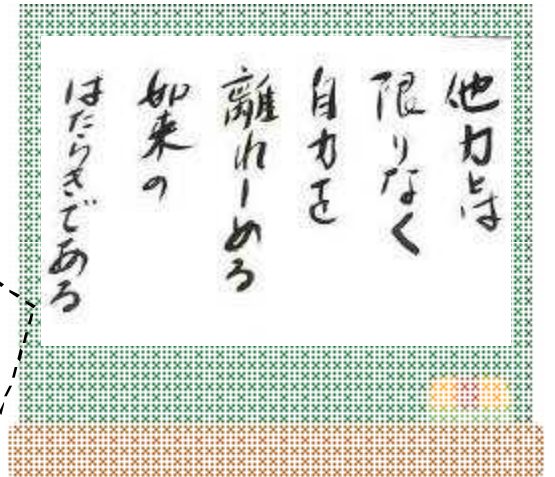 他力とは
限りなく
自力を
離れしめる
如来の
はたらきである